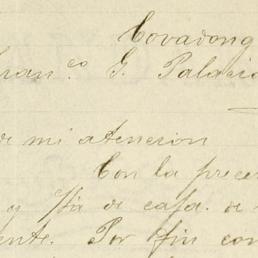 Covadong
ran.co G. Palacio
de mi atencion
Con la prece
y Fía de casa. de
ente. Por fin con